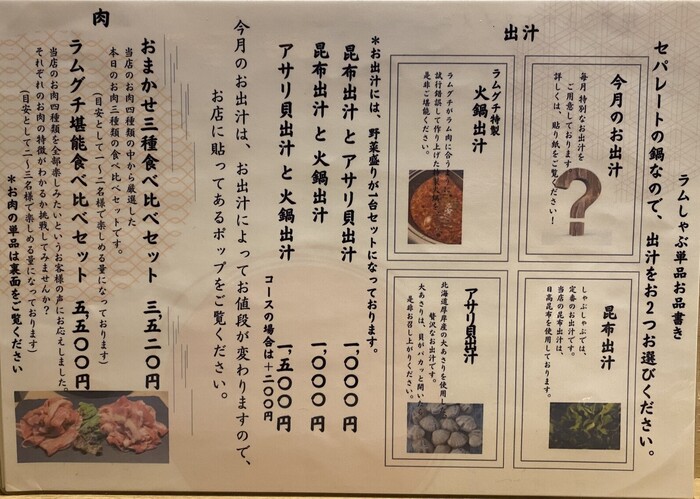 ラムしゃぶ単品お品書き
セパレートの鍋なので、出汁をお2つお選びください。
出汁
今月のお出汁
毎月特別なお出汁を
ご用意しております
詳しくは、貼り紙をご覧ください！
ラムグチ特製
火鍋出汁
ラムグチがラム肉に合う
試行錯誤して作り上げた特製火鍋
是非ご堪能ください。
昆布出汁
しゃぶしゃぶでは、
定番のお出汁です。
当店の昆布出汁は、
日高昆布を使用しております。
アサリ貝出汁
北海道厚岸産の大あさりを使用し
贅沢なお出汁です。
大あさりは、貝がパカッと開い
是非お召し上がりください。
*お出汁には、野菜盛りが1台セットになっております。
昆布出汁とアサリ貝出汁 一,〇〇〇円
昆布出汁と火鍋出汁 一,〇〇〇円
アサリ貝出汁と火鍋出汁 一,五〇〇円
コースの場合は+二〇〇円
今月のお出汁は、お出汁によってお値段が変わりますので、
お店に貼ってあるポップをご覧ください。
肉
おまかせ三種食べ比べセット 三,五二〇円
当店のお肉四種類の中から厳選した
本日のお肉三種類の食べ比べセットです。
(目安として一〜二名様で楽しめる量になっております)
ラムグチ堪能食べ比べセット 五,五〇〇円
当店のお肉四種類を全部楽しみたいというお客様の声にお応えしました。
それぞれのお肉の特徴がわかるか挑戦してみませんか？
(目安として二〜三名様で楽しめる量になっております)
*お肉の単品は裏面をご覧ください